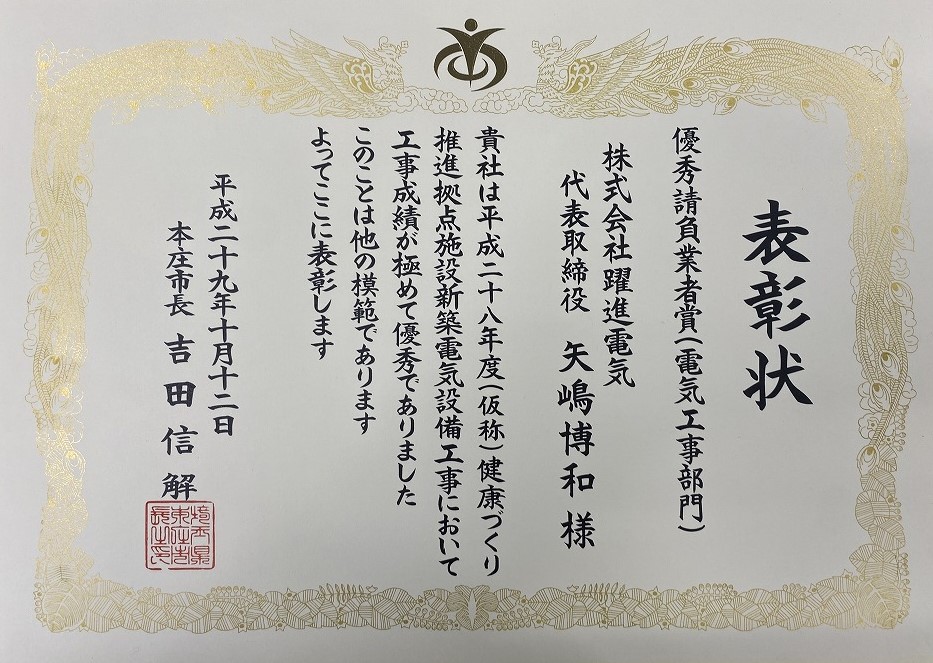 表彰状
優秀請負業者賞（電気工事部門）
株式会社躍進電気
代表取締役 矢嶋博和様
貴社は平成二十八年度（仮称）健康づくり
推進拠点施設新築電気設備工事において
工事成績が極めて優秀でありました
このことは他の模範であります
よってここに表彰します
平成二十九年十月十二日
本庄市長 吉田信解